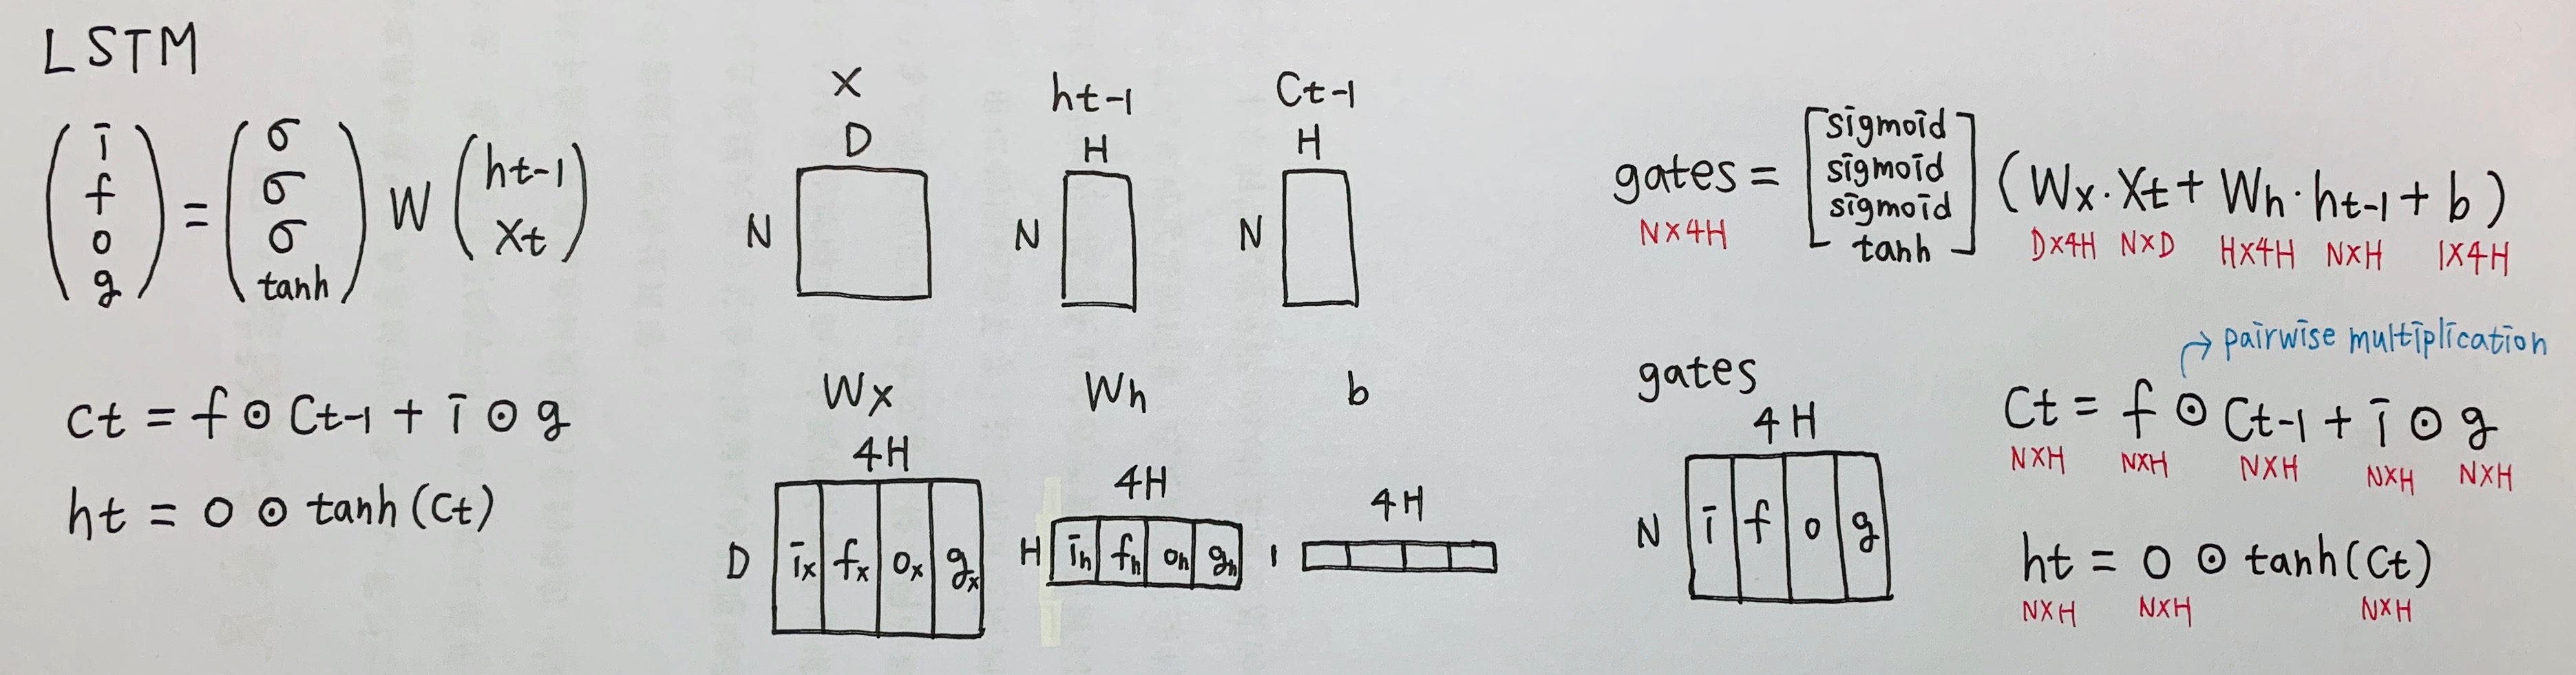 LSTM
( i f o g ) = ( σ σ σ tanh ) W ( ht-1 Xt )
Ct = f ⊙ Ct-1 + i ⊙ g
ht = o ⊙ tanh (Ct)
X
D
N
ht-1
H
N
Ct-1
H
N
Wx
4H
D
ix fx ox gx
Wh
4H
H
ih fh oh gh
b
4H
1
gates = [ sigmoid sigmoid sigmoid tanh ] (Wx · Xt + Wh · ht-1 + b)
N×4H D×4H N×D H×4H N×H 1×4H
gates
4H
N
i f o g
pairwise multiplication
Ct = f ⊙ Ct-1 + i ⊙ g
N×H N×H N×H N×H N×H
ht = o ⊙ tanh (Ct)
N×H N×H N×H